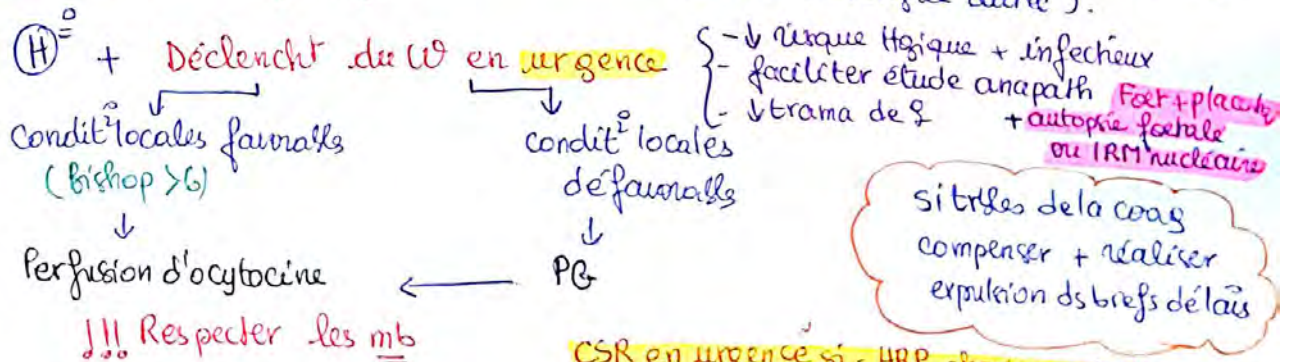 (H)° + Déclencht du W en urgence
- ↓ risque Hgique + infectieux
- faciliter étude anapath Foet + placenta
- ↓ trama de ♀ + autopsie foetale
ou IRM nucléaire
Condit° locales favorables
(Bishop >6)
↓
Perfusion d'ocytocine
!!! Respecter les mb
condit° locales
défavorables
↓
PG
←
si trbles de la coag
compenser + réaliser
expulsion ds brefs délais
CSR en urgence si HRP